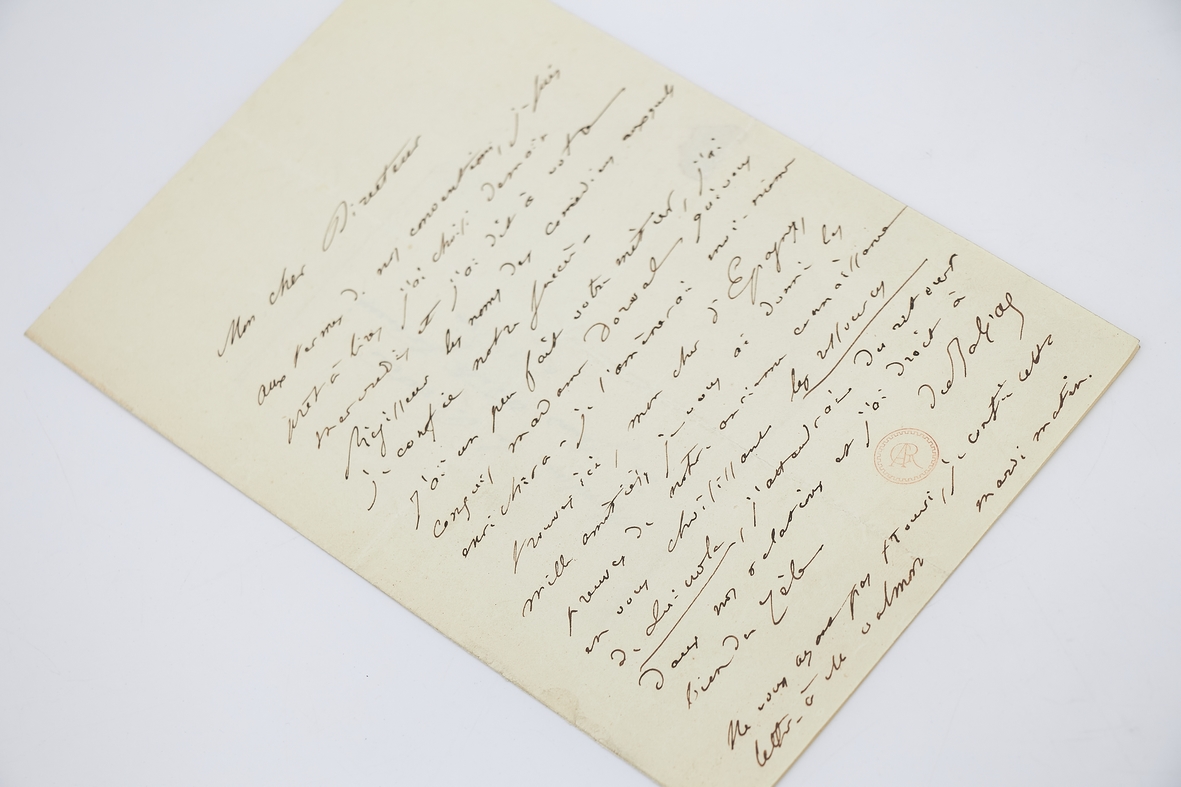 Mon cher Directeur
aux termes de nos conventions, je suis
prêt à lire, j'ai choisi demain
mercredi et j'ai dit à votre
Régisseur les noms des comédiens auxquels
je confie notre succès -
J'ai un peu fait votre métier, j'ai
conquis madame Dorval qui vous
enrichira - je l'amènerai moi-même
Trouvez ici, mon cher d'Epagny,
mille amitiés, je vous ai donné les
preuves de notre ancienne connaissance
en vous choisissant les ressources
de Quinola, j'attendrai du retour
dans nos relations et j'ai droit à
bien du zèle
de Balzac
Ne vous ayant pas trouvé, je confie cette
lettre à M. Valmore
mardi matin.
AR